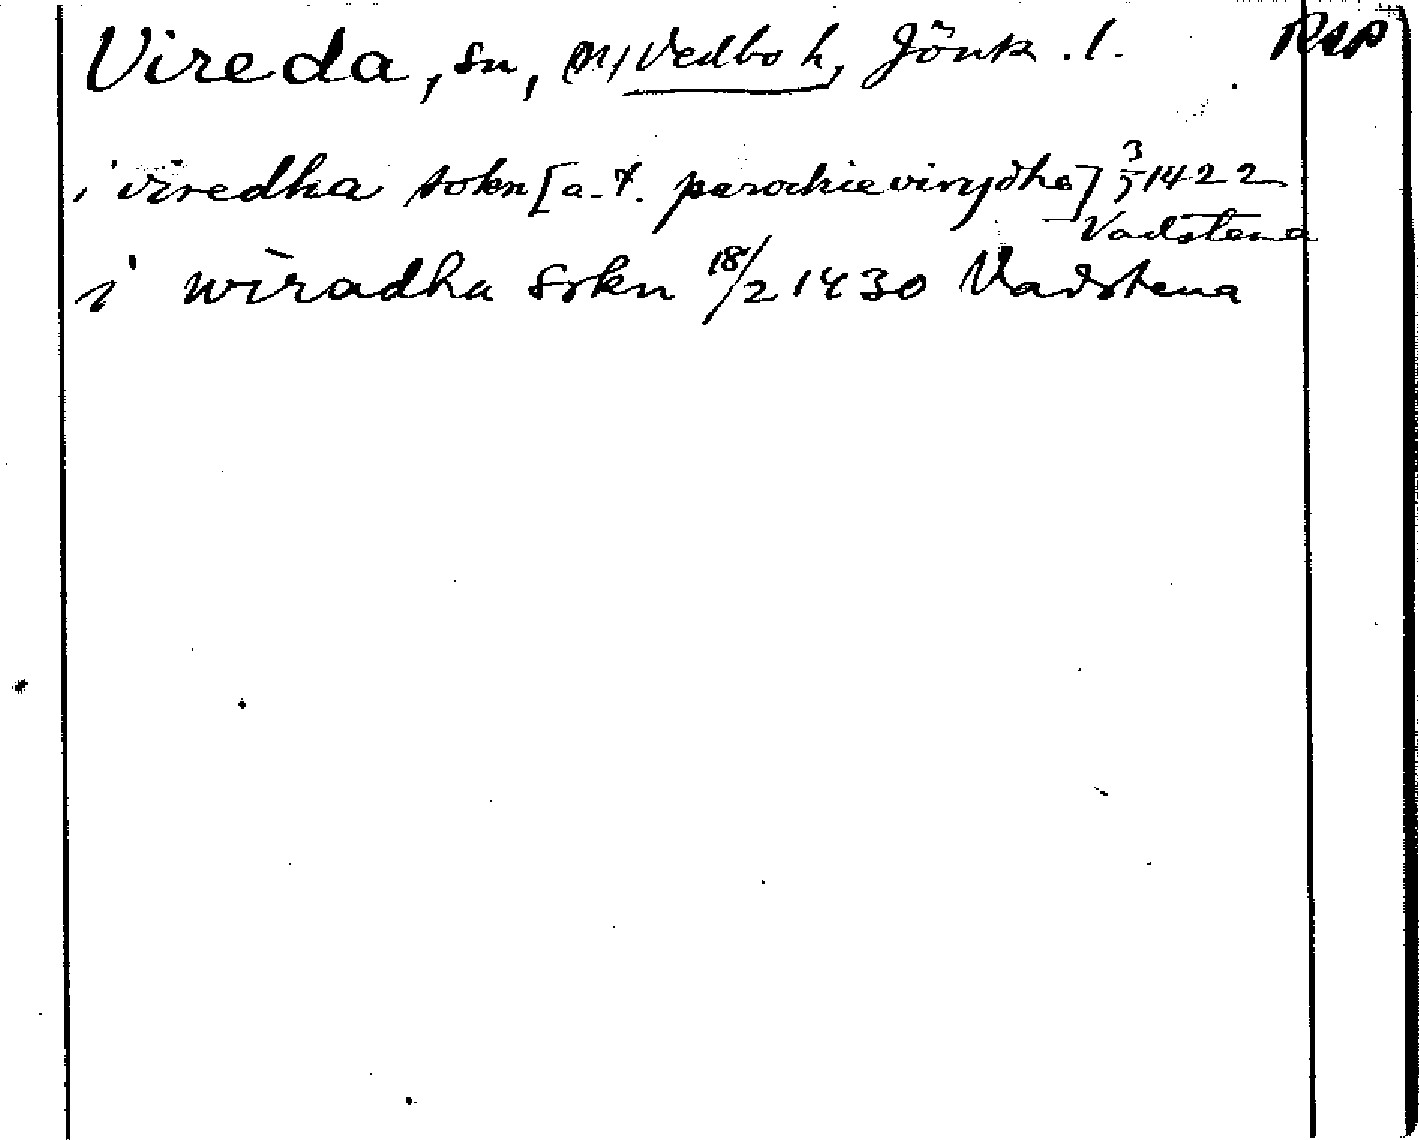 Vireda, sn, (N) Vedbo h, Jönk. l. RAP
i viredha sokn [a-t. parochie virydha] 3/5 1422
Vadstena
i wiradha sokn 18/2 1430 Vadstena